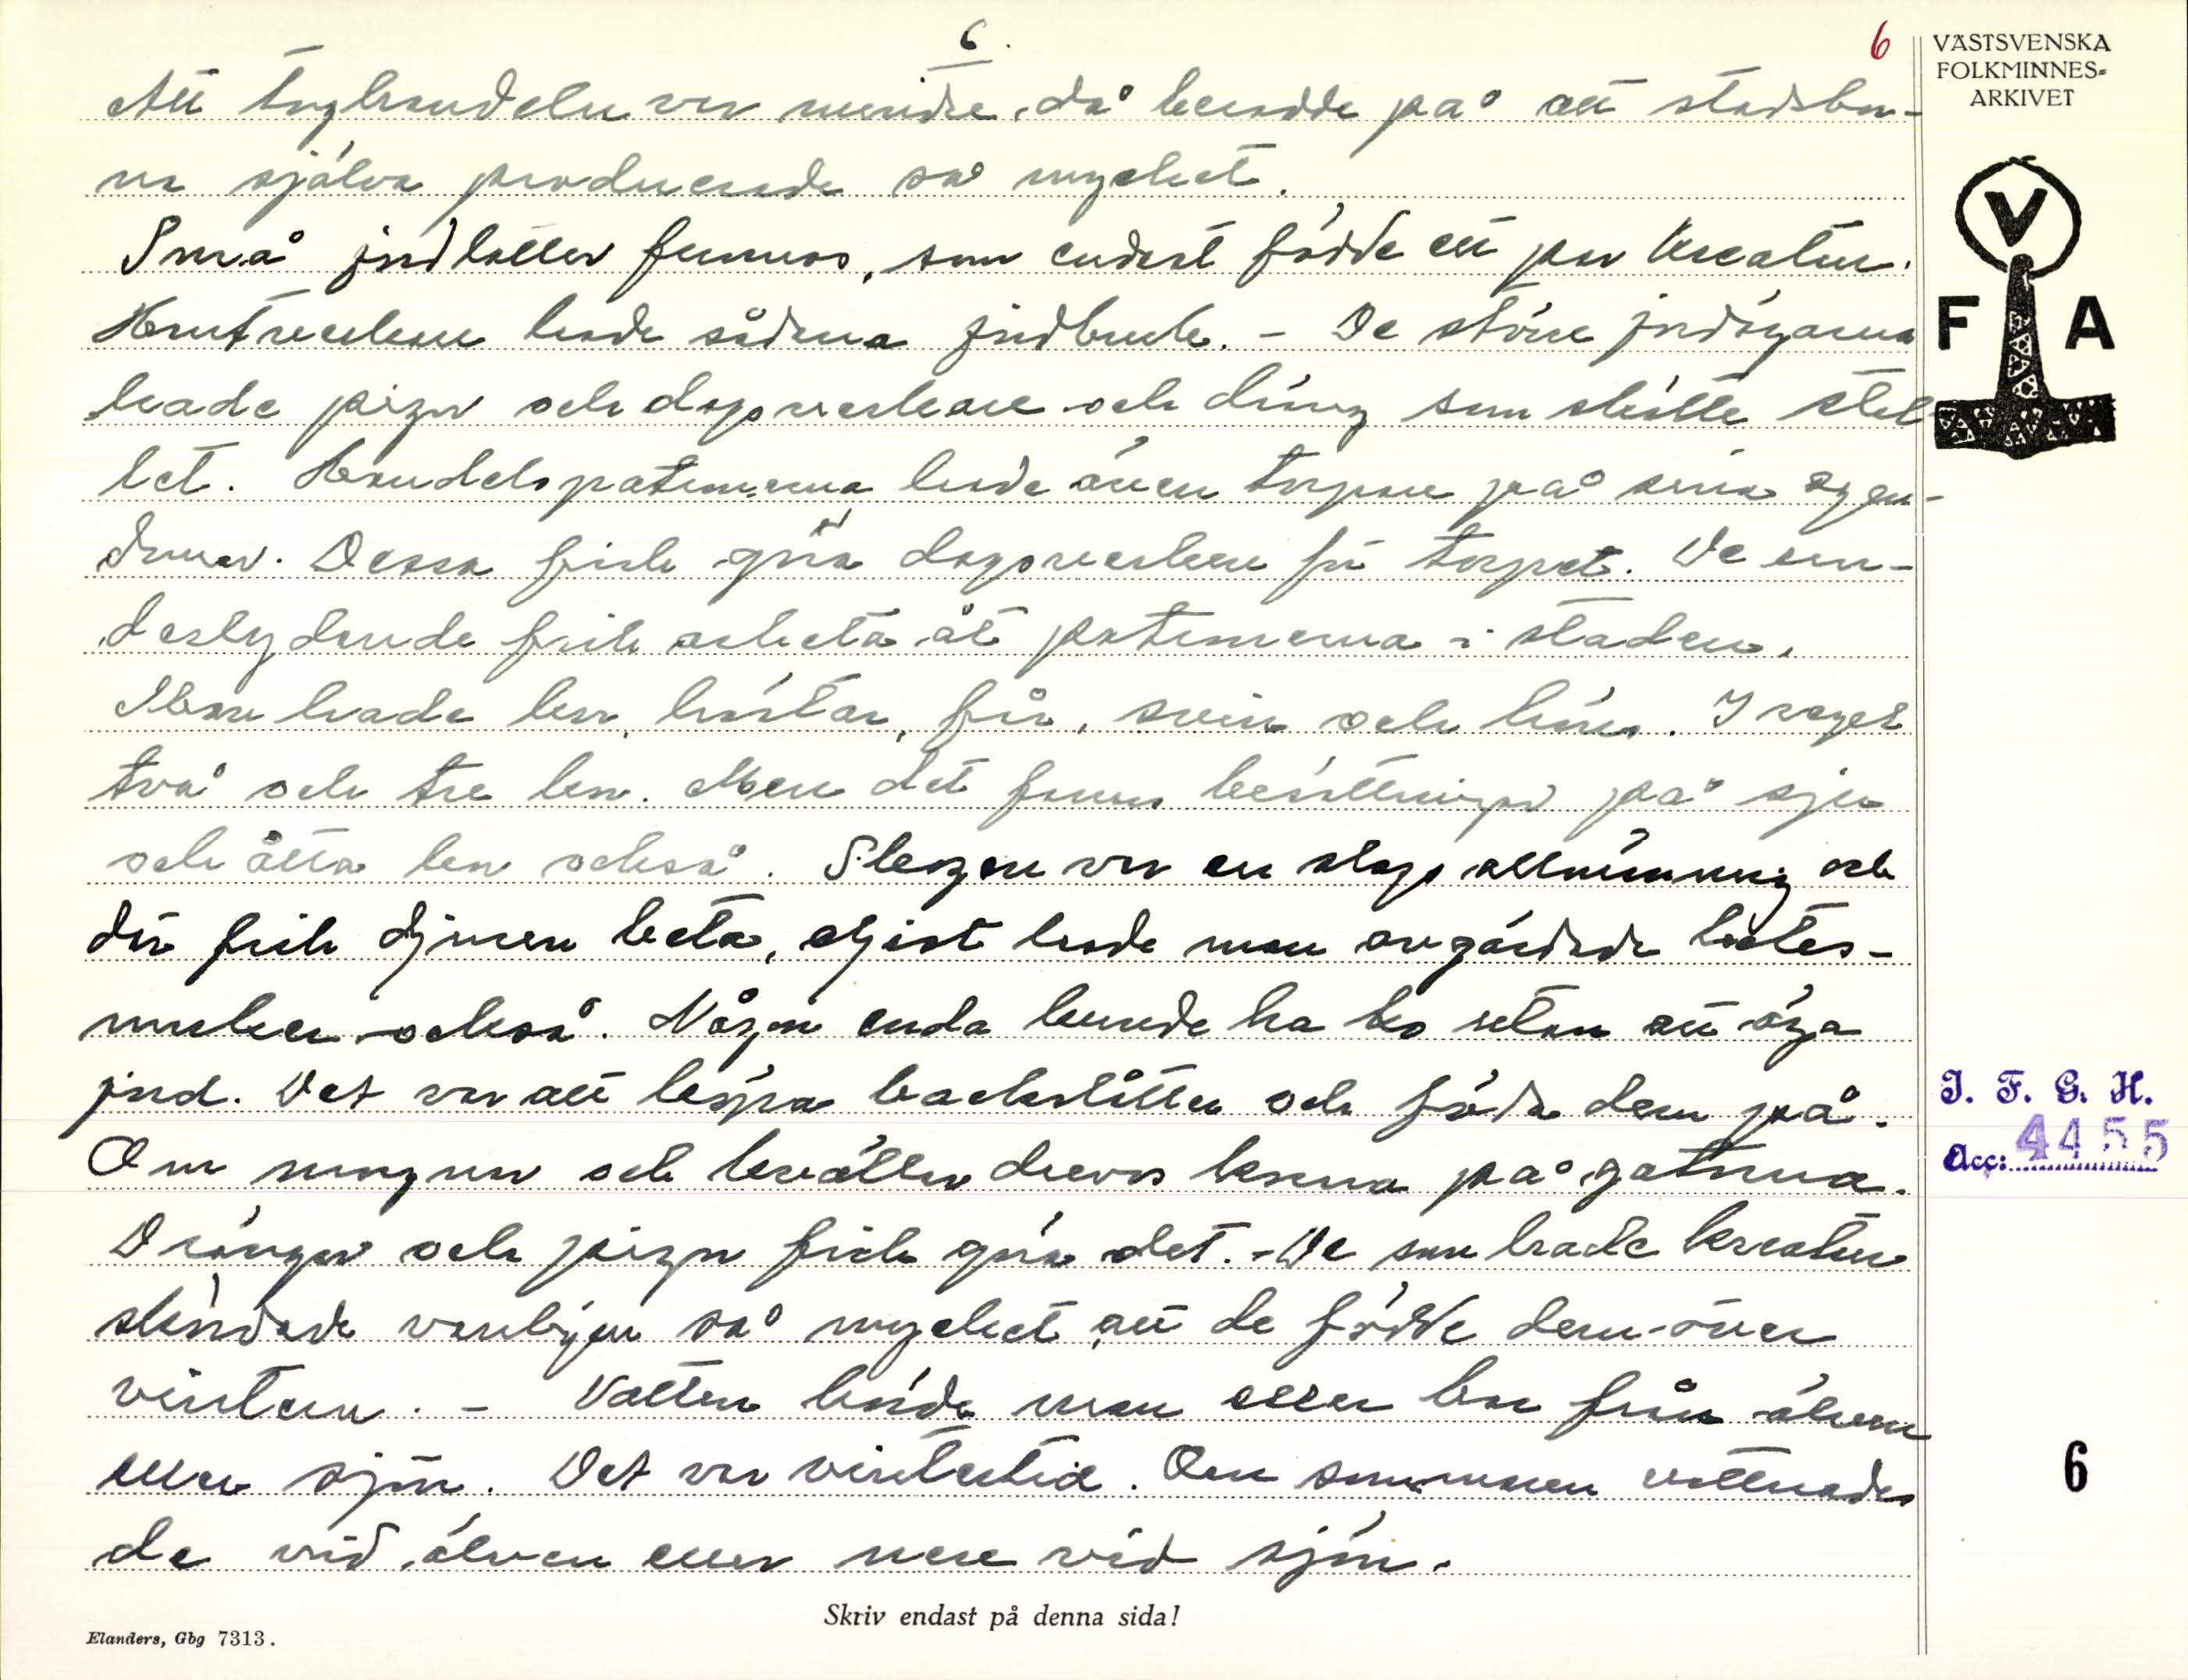 6.
6
VÄSTSVENSKA
FOLKMINNES-
ARKIVET
V
F A
Att torghandeln var mindre då berodde på att stadsbor-
na själva producerade så mycket.
Små jordlotter funnos, som endast födde ett par kreatur.
Hantverkare hade sådana jordbruk. - De större jordägarna
hade pigor och dagsverkare och dräng som skötte stäl
let. Handelspatronerna hade även torpare på sina egen-
domar. Dessa fick göra dagsverken för torpet. De un-
derlydande fick arbeta åt patronerna i staden.
Man hade kor, hästar, får, svin och höns. I regel
två och tre kor. Men det fanns besättningar på sju
och åtta kor också. Skogen var en slags allmänning och
där fick djuren beta, eljest hade man avgärdade betes-
marker också. Någon enda kunde ha ko utan att äga
jord. Det var att köpa backslåtter och föda dem på.
Om morgnar och kvällar drevos korna på gatorna.
Drängar och pigor fick göra det. - De som hade kreatur
skördade vanligen så mycket att de födde dem över
vintern. - Vatten körde man eller bar från älven
eller sjön. Det var vintertid. Om sommaren vattnades
de vid älven eller nere vid sjön.
J. F. G. H.
Acc: 4455
6
Skriv endast på denna sida!
Elanders, Gbg 7313.